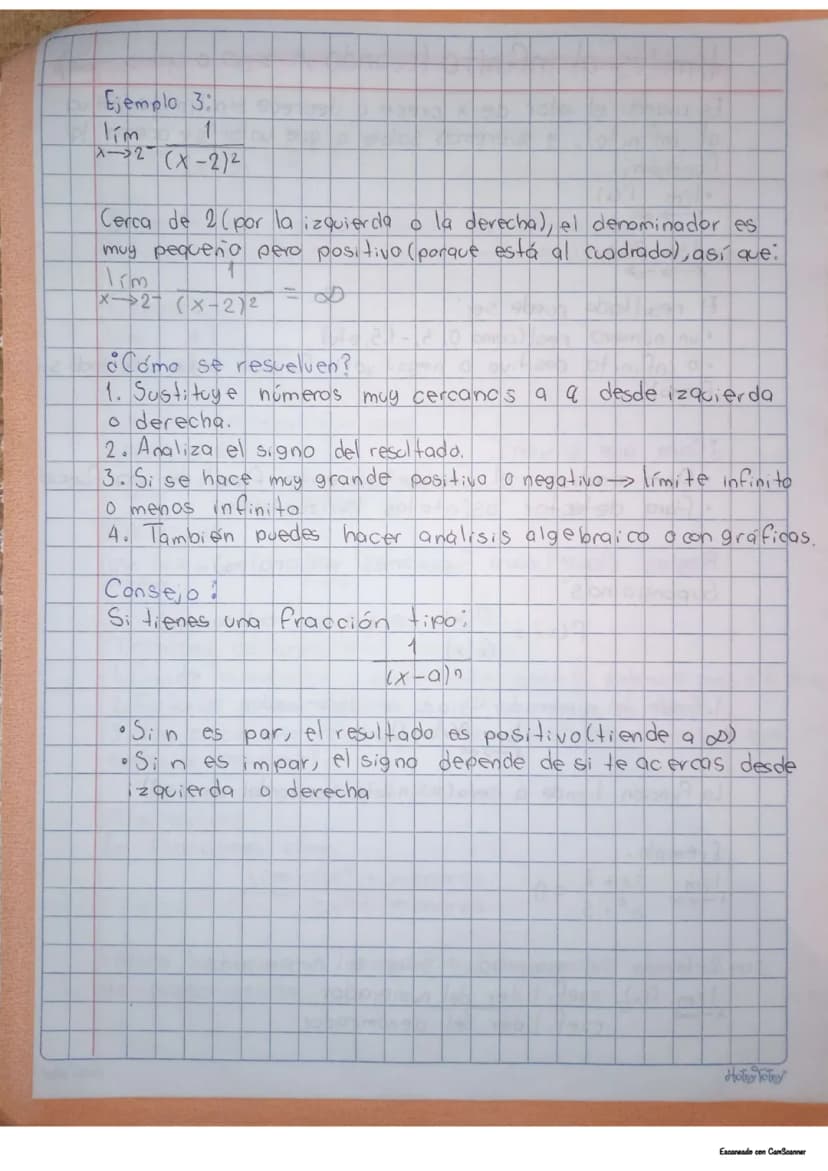 Ejemplo 3:
lím 1
x→2⁻ (x-2)²
Cerca de 2 (por la izquierda o la derecha), el denominador es
muy pequeño pero positivo (porque está al cuadrado), así que:
lím 1
x→2⁻ (x-2)² = ∞
¿Cómo se resuelven?
1. Sustituye números muy cercanos a a desde izquierda
o derecha.
2. Analiza el signo del resultado.
3. Si se hace muy grande positivo o negativo → límite infinito
o menos infinito
4. También puedes hacer análisis algebraico o con gráficas.
Consejo:
Si tienes una fracción tipo:
1
(x-a)ⁿ
• Si n es par, el resultado es positivo (tiende a ∞)
• Si n es impar, el signo depende de si te acercas desde
izquierda o derecha
HotsyTotsy
Escaneado con CamScanner